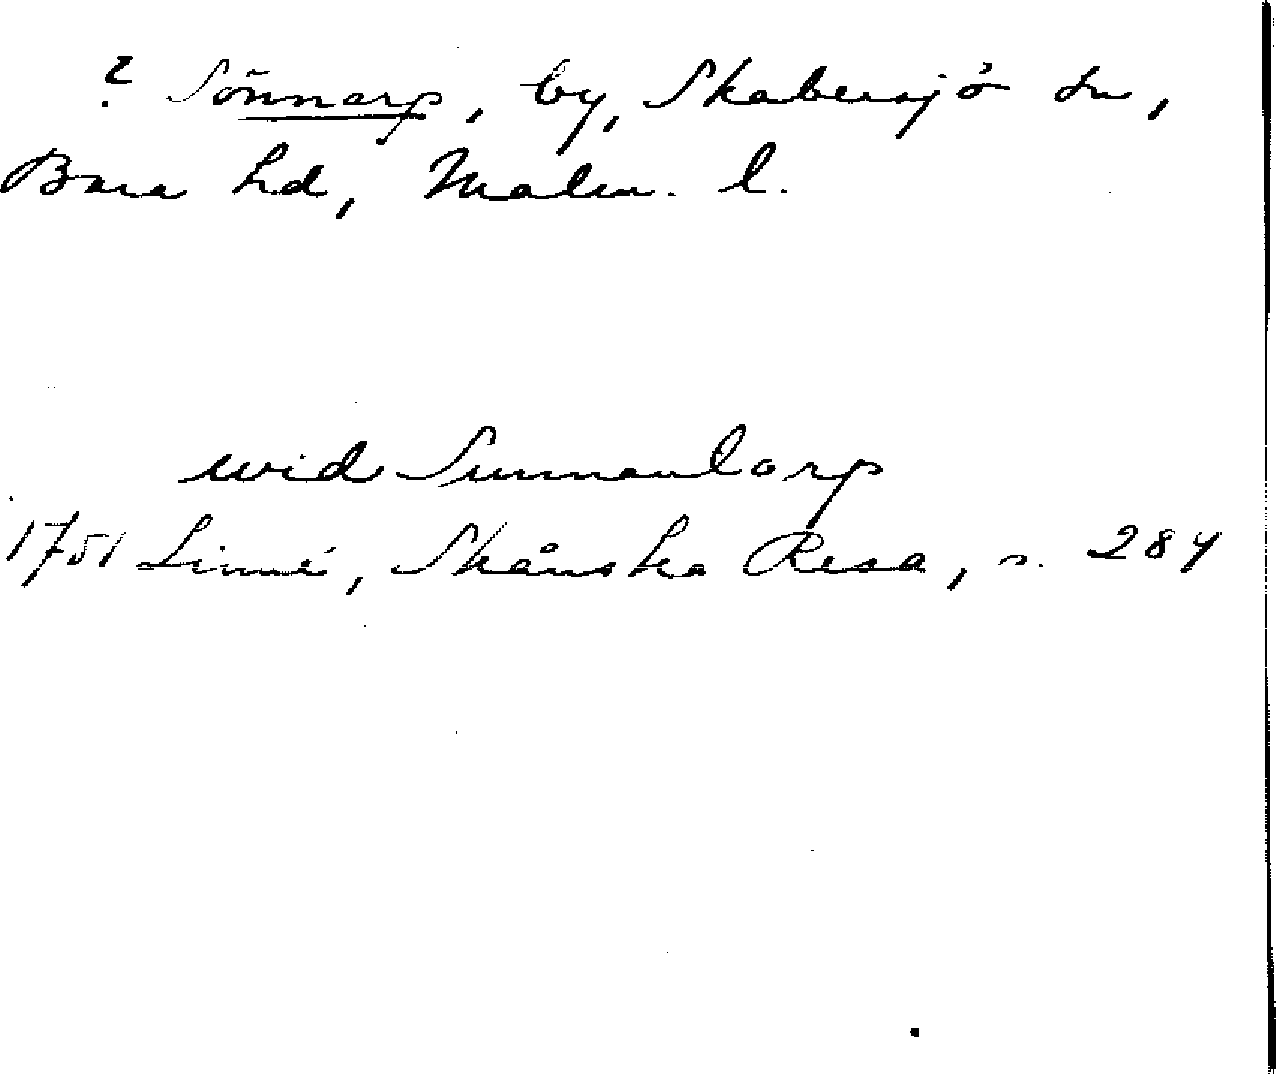 ? Sönnarp, by, Skabersjö sn,
Bara hd, Malm. l.
wid Sunnanlarp
1751 Linné, Skånska Resa, s. 284